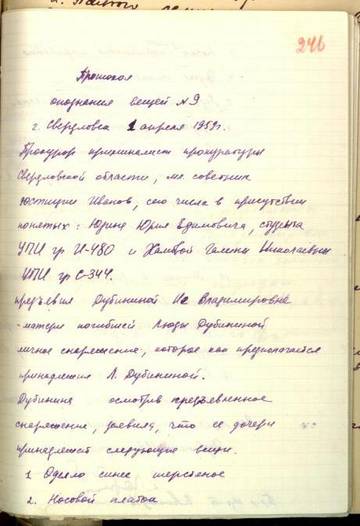 246
Протокол
опознания вещей №9
г. Свердловск 1 апреля 1959г.
Прокурор криминалист прокуратуры
Свердловской области, мл. советник
юстиции Иванов, сего числа в присутствии
понятых: Юрия Ефимовича, студента
УПИ гр И-480 и Галины Николаевны
УПИ гр С-344.
предъявил Дубининой Владимировне
матери погибшей Люды Дубининой
личное снаряжение, которое как предполагается
принадлежит Л. Дубининой.
Дубинина осмотрев предъявленное
снаряжение, заявила, что ее дочери
принадлежат следующие вещи.
1. Одеяло синее шерстяное
2. Носовой платок